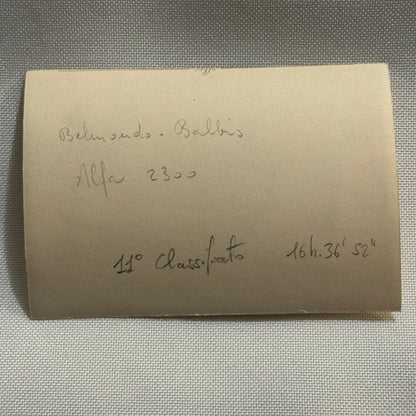 Belmondo - Balbis
Alfa 2300
11º Classificato 16h. 36' 52"